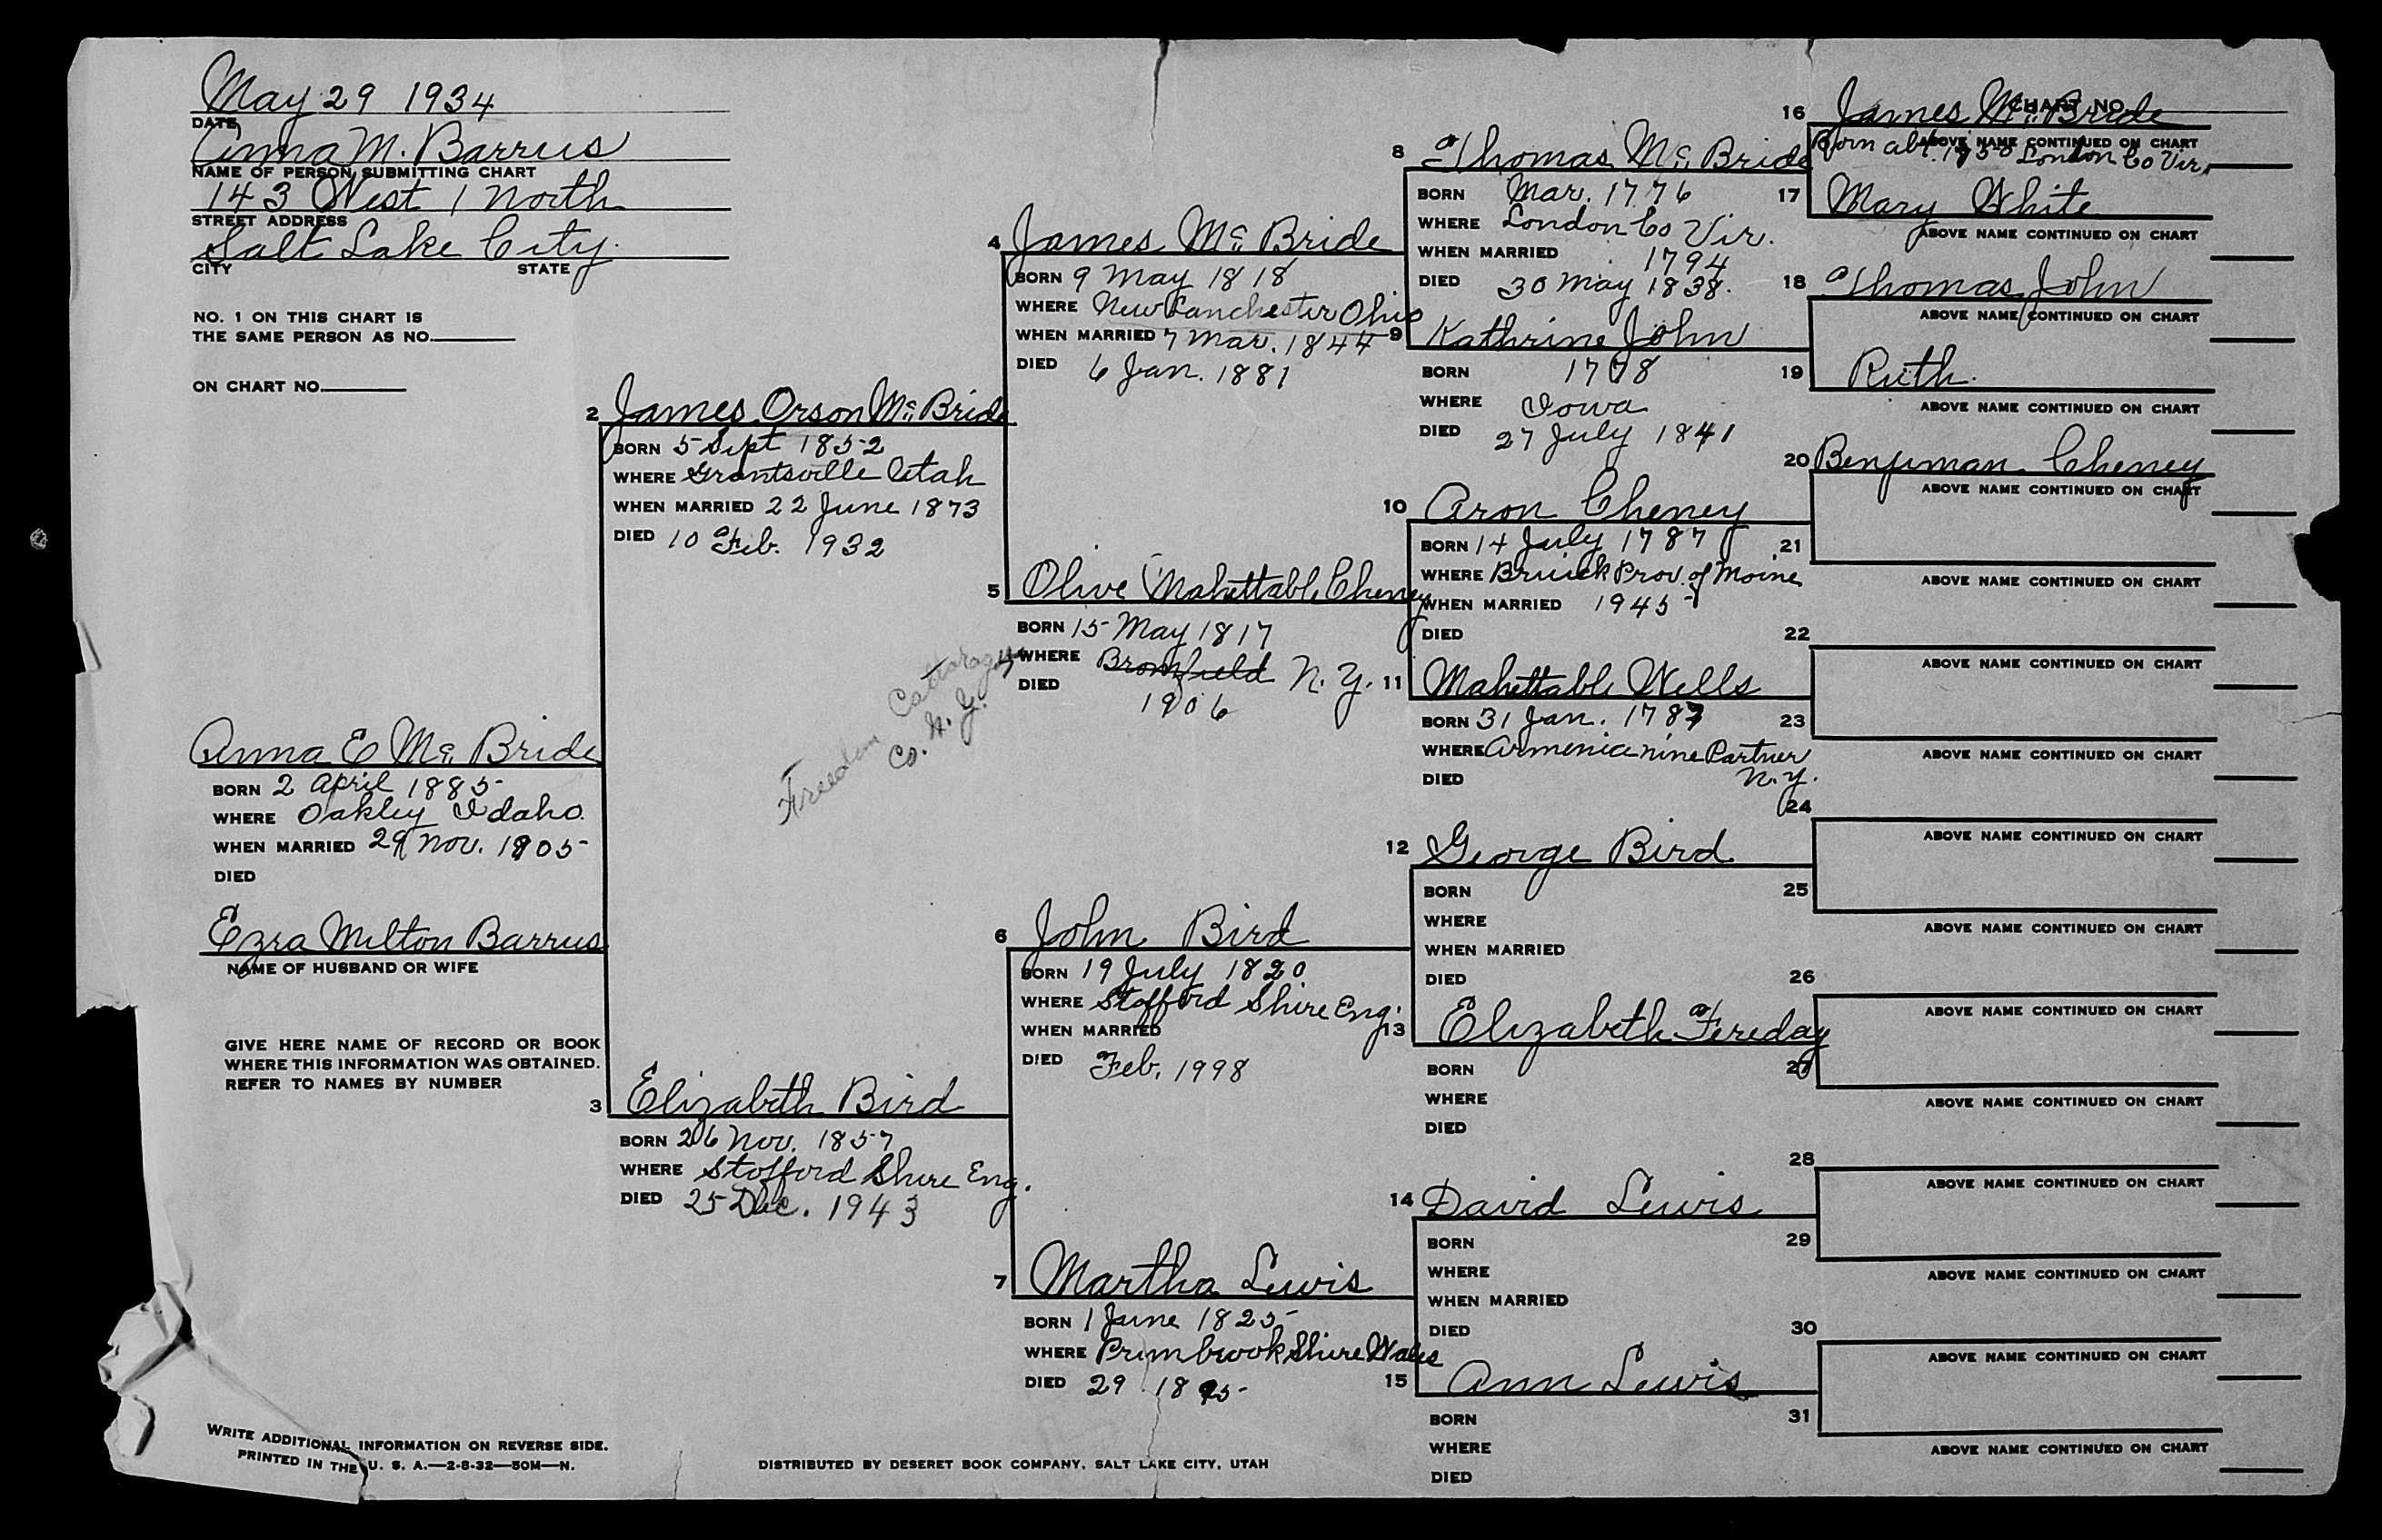 May 29 1934
DATE
Anna M. Barrus
NAME OF PERSON SUBMITTING CHART
143 West 1 North
STREET ADDRESS
Salt Lake City.
CITY STATE
NO. 1 ON THIS CHART IS
THE SAME PERSON AS NO.
ON CHART NO.
Anna E McBride
BORN 2 April 1885
WHERE Oakley Idaho.
WHEN MARRIED 29 Nov. 1905
DIED
Ezra Milton Barrus
NAME OF HUSBAND OR WIFE
GIVE HERE NAME OF RECORD OR BOOK
WHERE THIS INFORMATION WAS OBTAINED.
REFER TO NAMES BY NUMBER
WRITE ADDITIONAL INFORMATION ON REVERSE SIDE.
PRINTED IN THE U. S. A.—2-8-32—50M—N.
2 James Orson McBride
BORN 5 Sept 1852
WHERE Grantsville Utah
WHEN MARRIED 22 June 1873
DIED 10 Feb. 1932
Freedom Co. N.Y.
3 Elizabeth Bird
BORN 26 Nov. 1857
WHERE Stofford Shire Eng.
DIED 25 Dec. 1943
DISTRIBUTED BY DESERET BOOK COMPANY, SALT LAKE CITY, UTAH
4 James McBride
BORN 9 May 1818
WHERE New Lanchester Ohio
WHEN MARRIED 7 Mar. 1844
DIED 6 Jan. 1881
5 Olive Mahettable Cheney
BORN 15 May 1817
WHERE Bromfield N.Y.
DIED 1906
6 John Bird
BORN 19 July 1820
WHERE Stofford Shire Eng.
WHEN MARRIED
DIED Feb. 1998
7 Martha Lewis
BORN 1 June 1825
WHERE Prembrook Shire Wales
DIED 29 1895
8 Thomas McBride
BORN Mar. 1776
WHERE London Co Vir.
WHEN MARRIED 1794
DIED 30 May 1838.
9 Kathrine John
BORN 1778
WHERE Iowa
DIED 27 July 1841
10 Aron Cheney
BORN 14 July 1787
WHERE Prov. of Moine
WHEN MARRIED 1945
DIED
11 Mahettable Wells
BORN 31 Jan. 1787
WHERE Armenia nine Partner
N.Y.
DIED
12 George Bird
BORN
WHERE
WHEN MARRIED
DIED
13 Elizabeth Fereday
BORN
WHERE
DIED
14 David Lewis
BORN
WHERE
WHEN MARRIED
DIED
15 Ann Lewis
BORN
WHERE
DIED
CHART NO.
16 James McBride
ABOVE NAME CONTINUED ON CHART
Born abt. 1750 London Co Vir.
17 Mary White
ABOVE NAME CONTINUED ON CHART
18 Thomas John
ABOVE NAME CONTINUED ON CHART
19 Ruth.
ABOVE NAME CONTINUED ON CHART
20 Benjiman Cheney
ABOVE NAME CONTINUED ON CHART
21
ABOVE NAME CONTINUED ON CHART
22
ABOVE NAME CONTINUED ON CHART
23
ABOVE NAME CONTINUED ON CHART
24
ABOVE NAME CONTINUED ON CHART
25
ABOVE NAME CONTINUED ON CHART
26
ABOVE NAME CONTINUED ON CHART
27
ABOVE NAME CONTINUED ON CHART
28
ABOVE NAME CONTINUED ON CHART
29
ABOVE NAME CONTINUED ON CHART
30
ABOVE NAME CONTINUED ON CHART
31
ABOVE NAME CONTINUED ON CHART